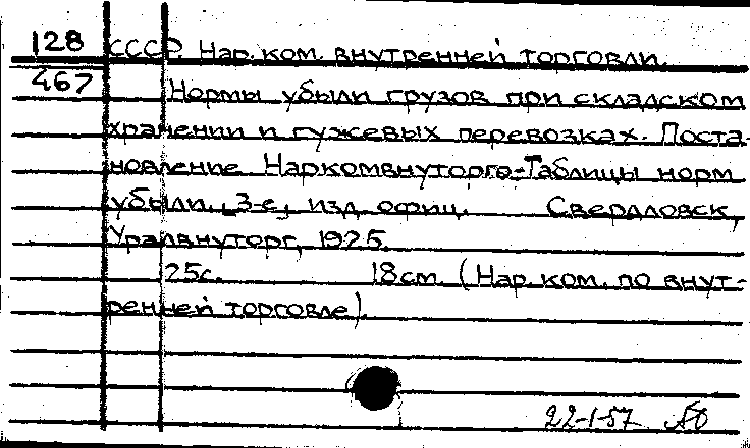 128
467
СССР. Нар. ком. внутренней торговли.
Нормы убыли грузов при складском
хранении и гужевых перевозках. Поста-
новление Наркомвнуторга. Таблицы норм
убыли. 3-е, изд. офиц. Свердловск,
Уралвнуторг, 1925.
25с. 18см. (Нар. ком. по внут-
ренней торговле).
22-1-57